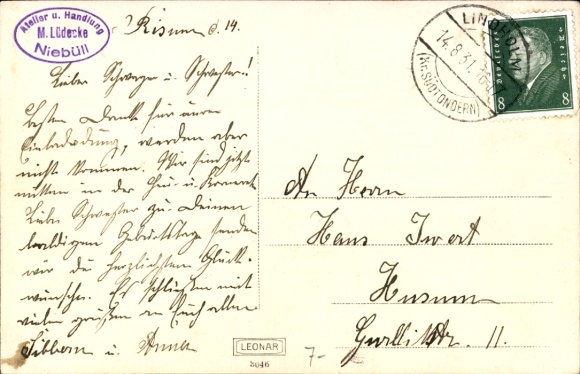 Atelier u. Handlung
M. Lüdecke
Niebüll
Risum d. 14.
Liebe Schwager u. Schwester!
Besten Dank für eure
Einladung, werden aber
nicht kommen. Wir sind jetzt
mitten in der Heu- u. Kornernte
Liebe Schwester zu Deinem
baldigen Geburtstage senden
wir die herzlichsten Glück-
wünsche. Es schließen mit
vielen grüßen an Euch allen
u. Anna
LINDHOLM
14.8.31.
(Kr. SÜDTONDERN)
Deutsches Reich
8 8
An Herrn
Hans Iwert
Husum
11.
LEONAR
3046
7-